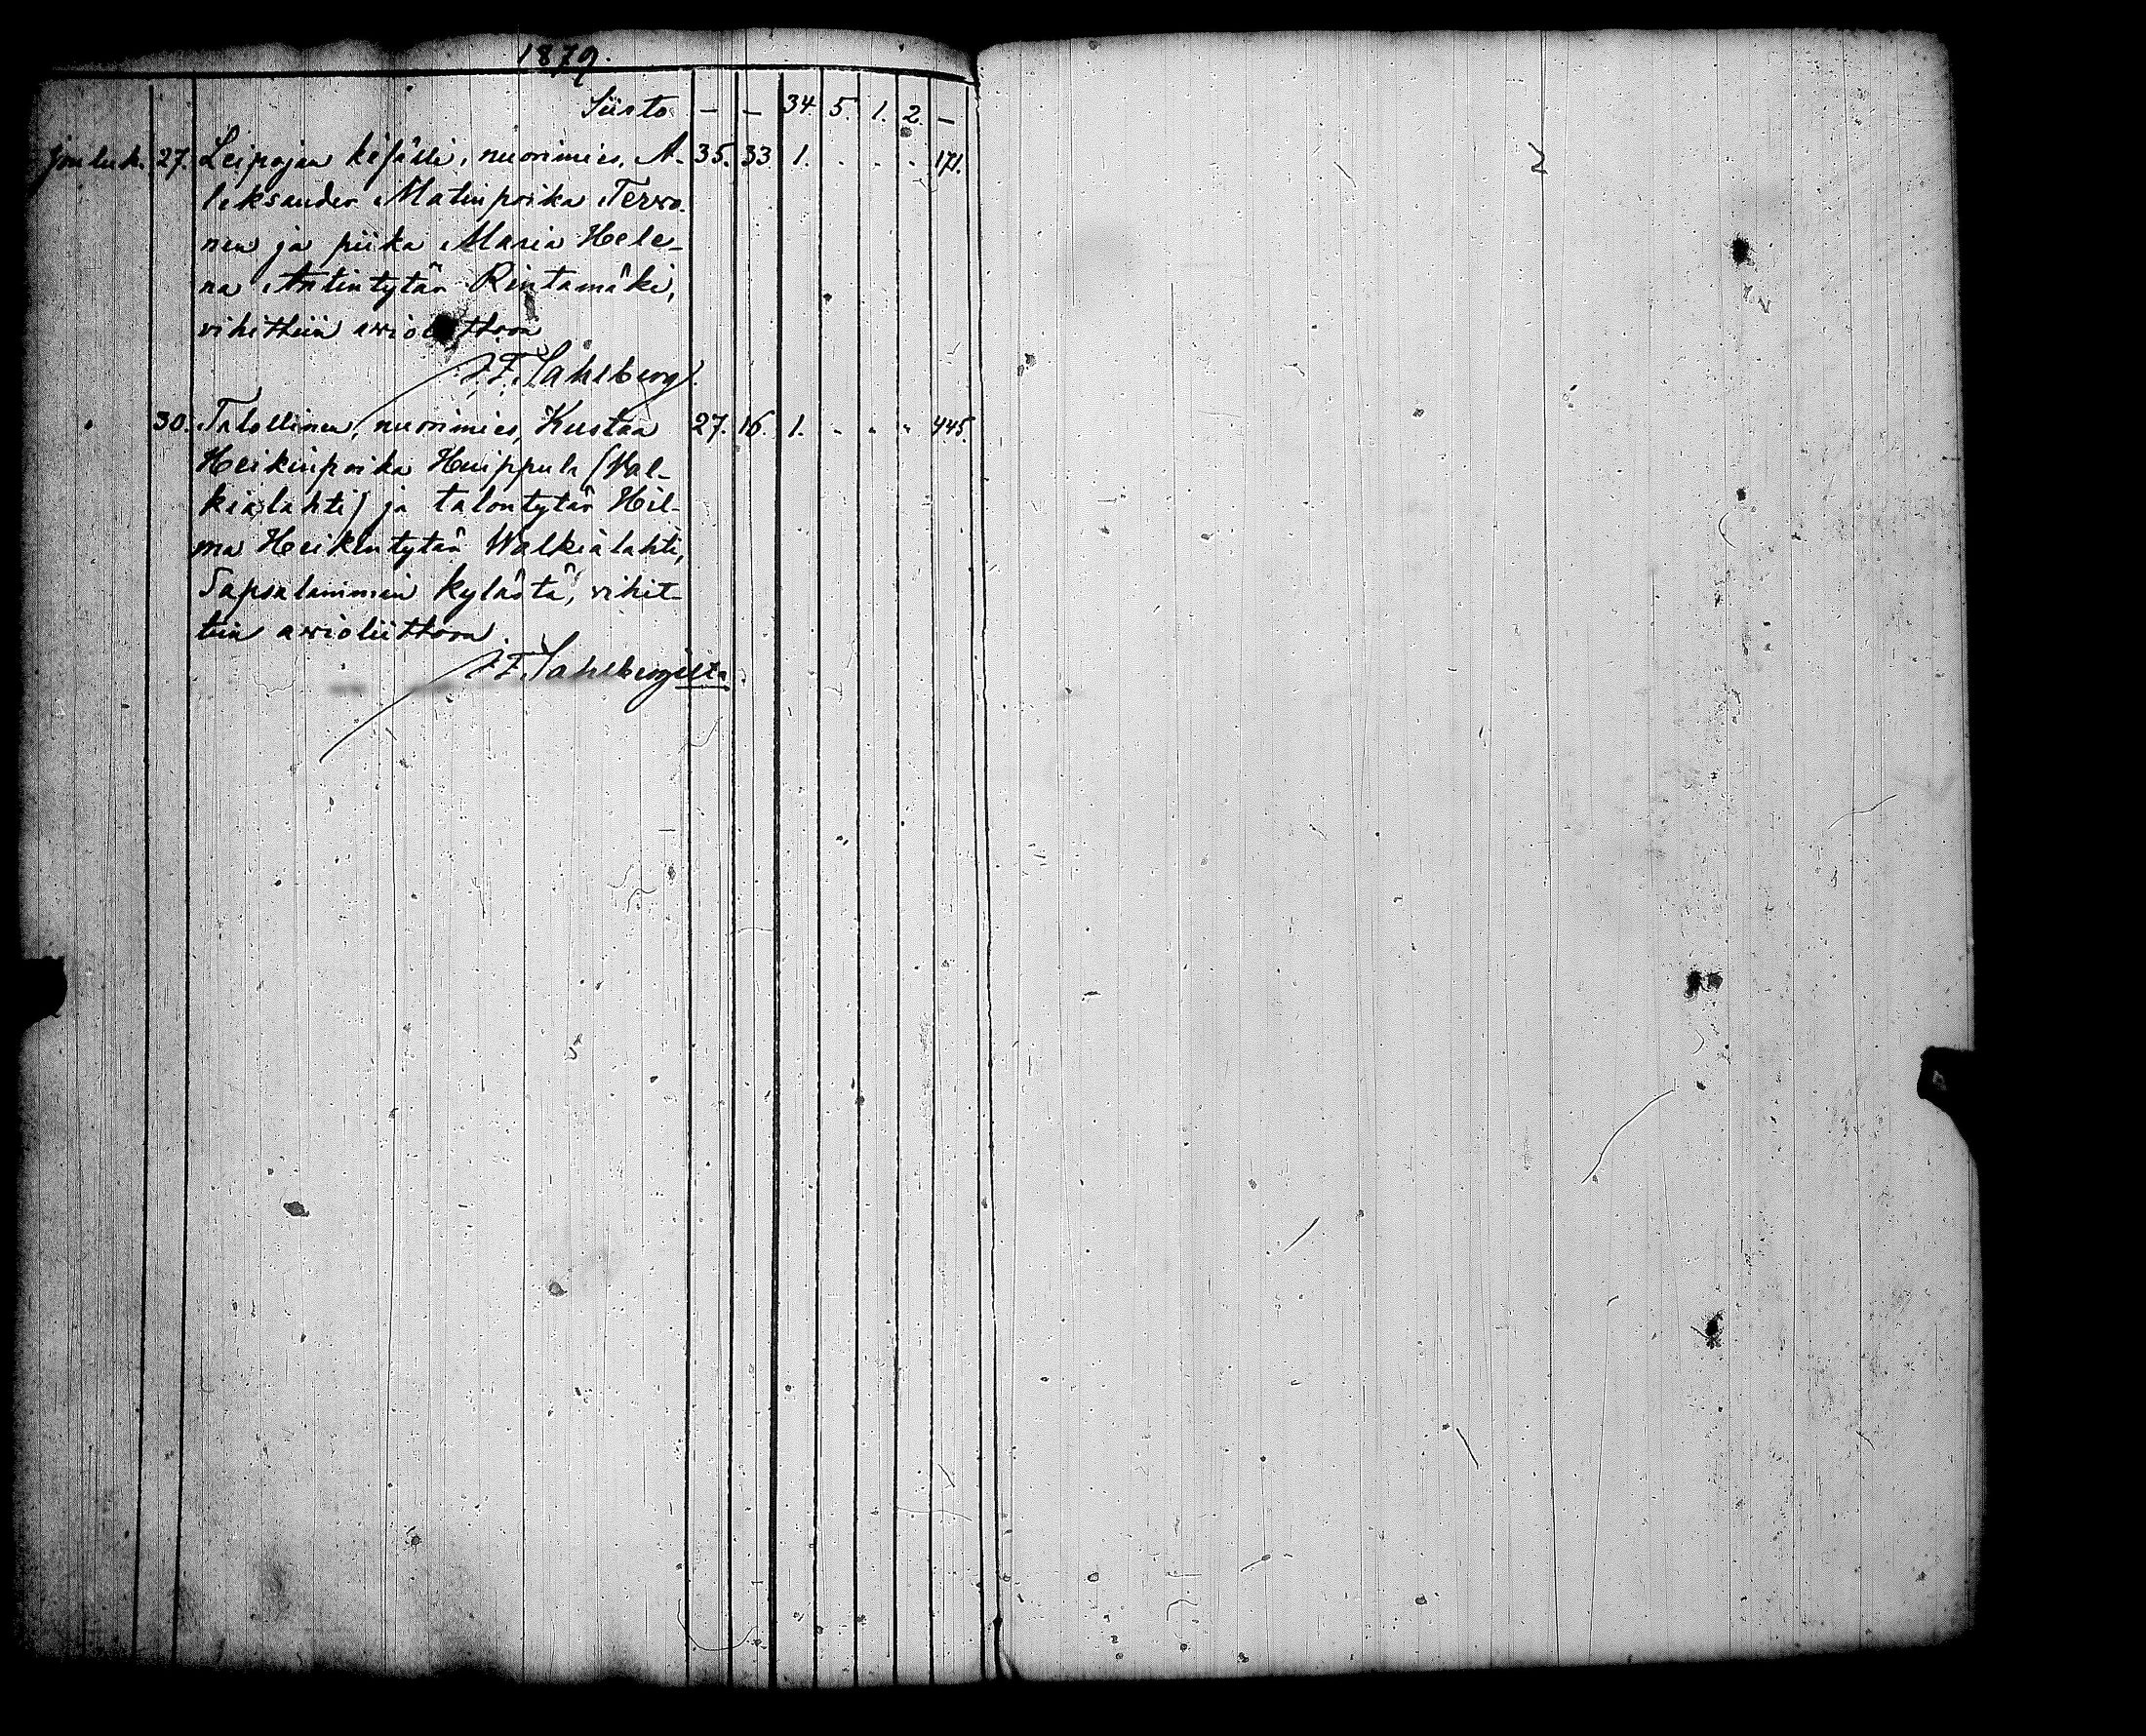 1879.
Siirto — — 34. 5. 1. 2. —
Jouluk. 27. Leipojan kisälli, nuorimies, A- 35. 33 1. . . . 171.
leksander Matinpoika Tervo-
nen ja piika Maria Hele-
na Antintytär Rintamäki,
vihittiin avioliittoon
J. F. Sahlberg.
" 30. Talollinen, nuorimies, Kustaa 27. 16. 1. . . " 445.
Heikinpoika Huippula (Wal-
kialahti) ja talontytär Hil-
ma Heikintytär Walkialahti,
Sapsalammin kylästä, vihit-
tiin avioliittoon
J. F. Sahlbergilta.